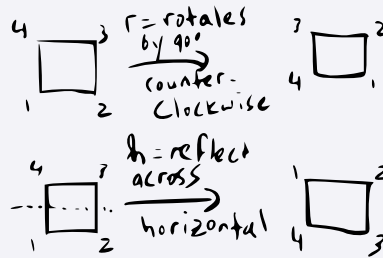 4 3
1 2
r = rotates
by 90°
counter-
clockwise
3 2
4 1
4 3
1 2
h = reflect
across
horizontal
1 2
4 3